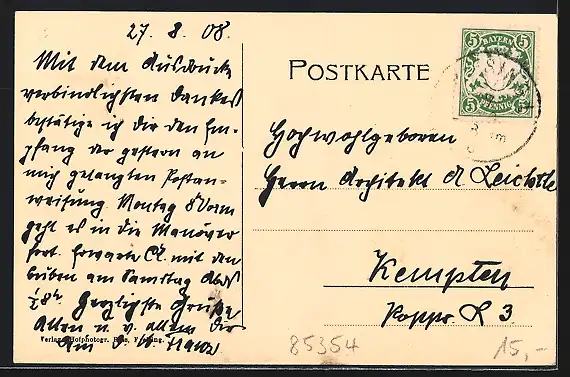 27. 8. 08.
Mit dem Ausdrucke
verbindlichsten Dankes
bestätige ich die den Em-
pfang der gestern an
mich gelangten Postan-
weisung. Montag 8 Vorm
geht es in die Manöver
fort. Erwarte A. mit den
buben am Samstag Abds
½8h. Herzlichste Grüße
Allen u. v. allem Dir
Verlag Hofphotogr.
POSTKARTE
5 BAYERN 5
5 PFENNIG 5
Hochwohlgeboren
Herrn Architekt A. Leichtle
Kempten
Poppstr. L 3
85354
15,-